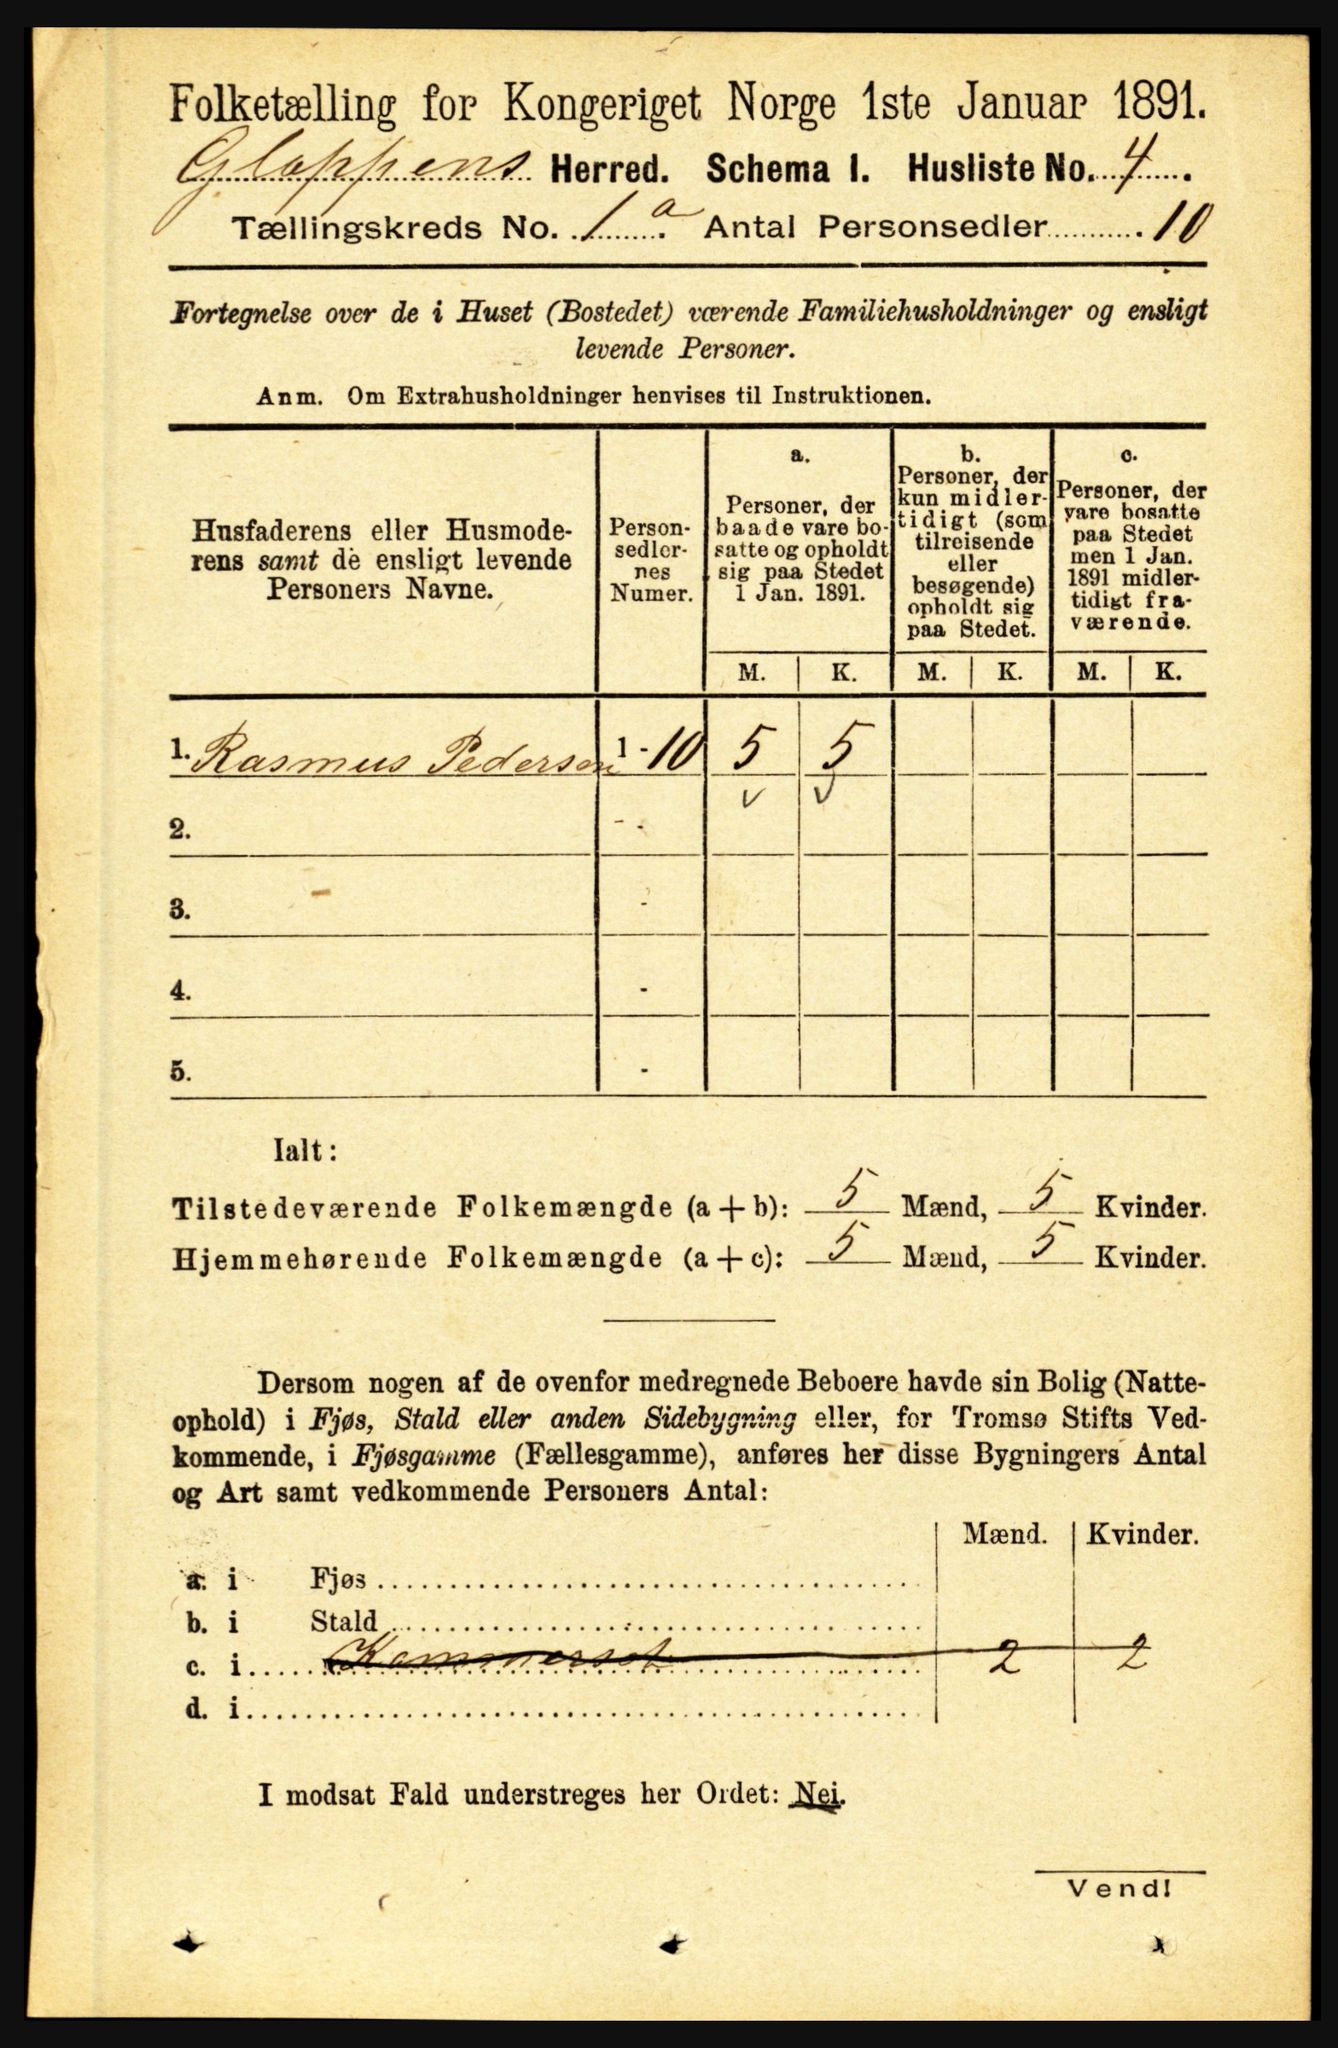 Folketælling for Kongeriget Norge 1ste Januar 1891.
Gloppens Herred. Schema I. Husliste No. 4.
Tællingskreds No. 1 a. Antal Personsedler 10
Fortegnelse over de i Huset (Bostedet) værende Familiehusholdninger og ensligt
levende Personer.
Anm. Om Extrahusholdninger henvises til Instruktionen.
Husfaderens eller Husmode-
rens samt de ensligt levende
Personers Navne.
Person-
sedler-
nes
Numer.
a.
Personer, der
baade vare bo-
satte og opholdt
sig paa Stedet
1 Jan. 1891.
b.
Personer, der
kun midler-
tidigt (som
tilreisende
eller
besøgende)
opholdt sig
paa Stedet.
c.
Personer, der
vare bosatte
paa Stedet
men 1 Jan.
1891 midler-
tidigt fra-
værende.
M. K. M. K. M. K.
1. Rasmus Pedersen 1 - 10 5 5
2. -
3. -
4. -
5. -
Ialt:
Tilstedeværende Folkemængde (a + b): 5 Mænd, 5 Kvinder.
Hjemmehørende Folkemængde (a + c): 5 Mænd, 5 Kvinder.
Dersom nogen af de ovenfor medregnede Beboere havde sin Bolig (Natte-
ophold) i Fjøs, Stald eller anden Sidebygning eller, for Tromsø Stifts Ved-
kommende, i Fjøsgamme (Fællesgamme), anføres her disse Bygningers Antal
og Art samt vedkommende Personers Antal:
Mænd. Kvinder.
a. i Fjøs
b. i Stald
c. i 2 2
d. i
I modsat Fald understreges her Ordet: Nei.
Vend!